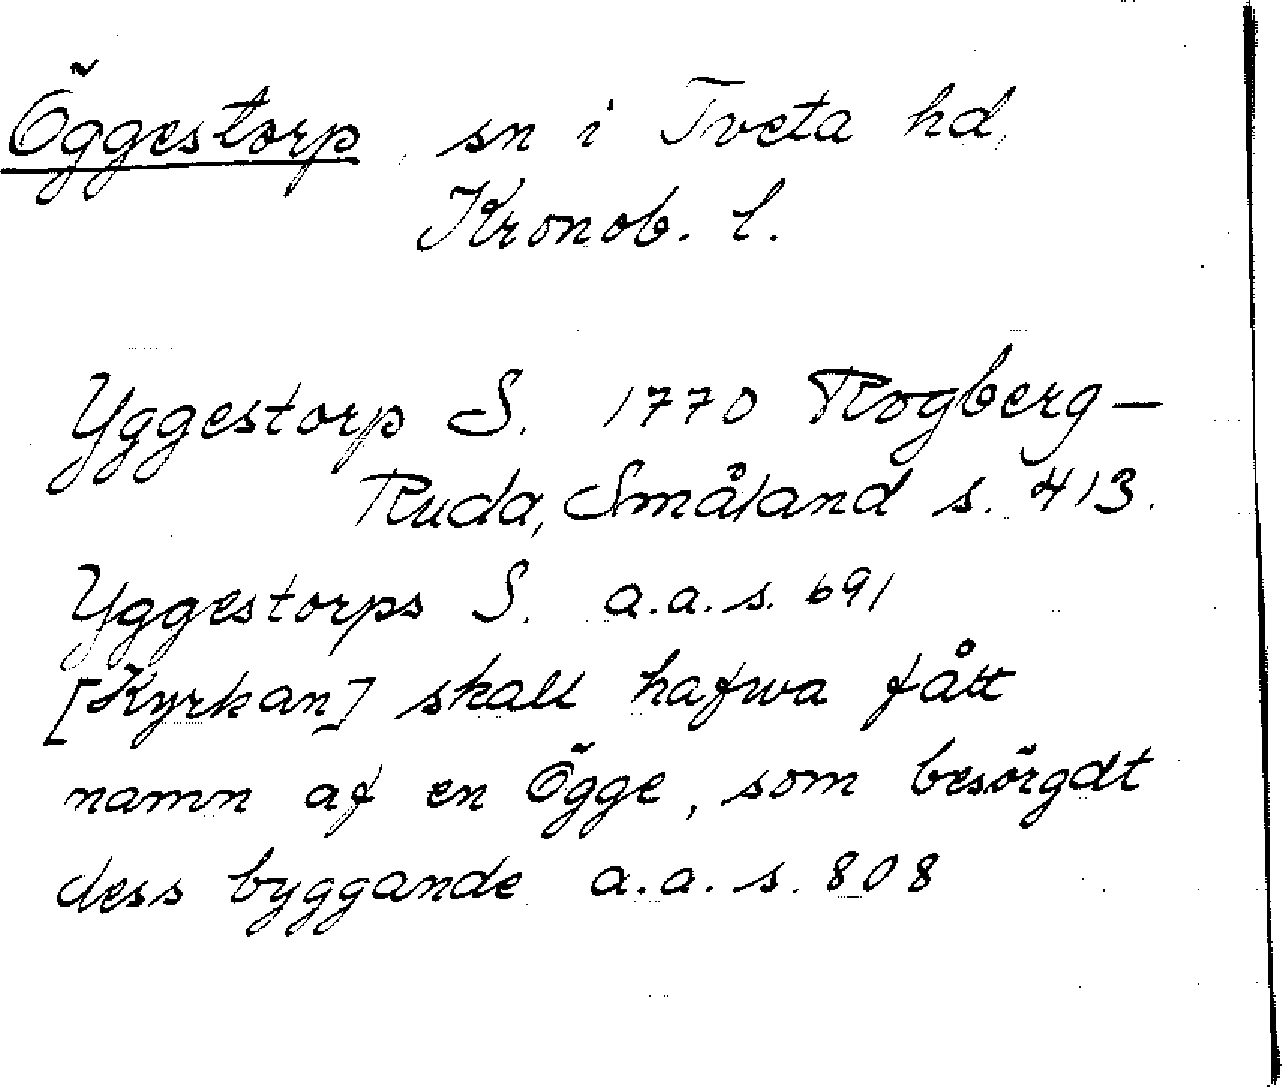 Öggestorp, sn i Tveta hd,
Kronob. l.
Yggestorp S. 1770 Rogberg-
Ruda, Småland s. 413.
Yggestorps S. a.a. s. 691
[Kyrkan] skall hafwa fått
namn af en Ögge, som besörgdt
dess byggande a.a. s. 808